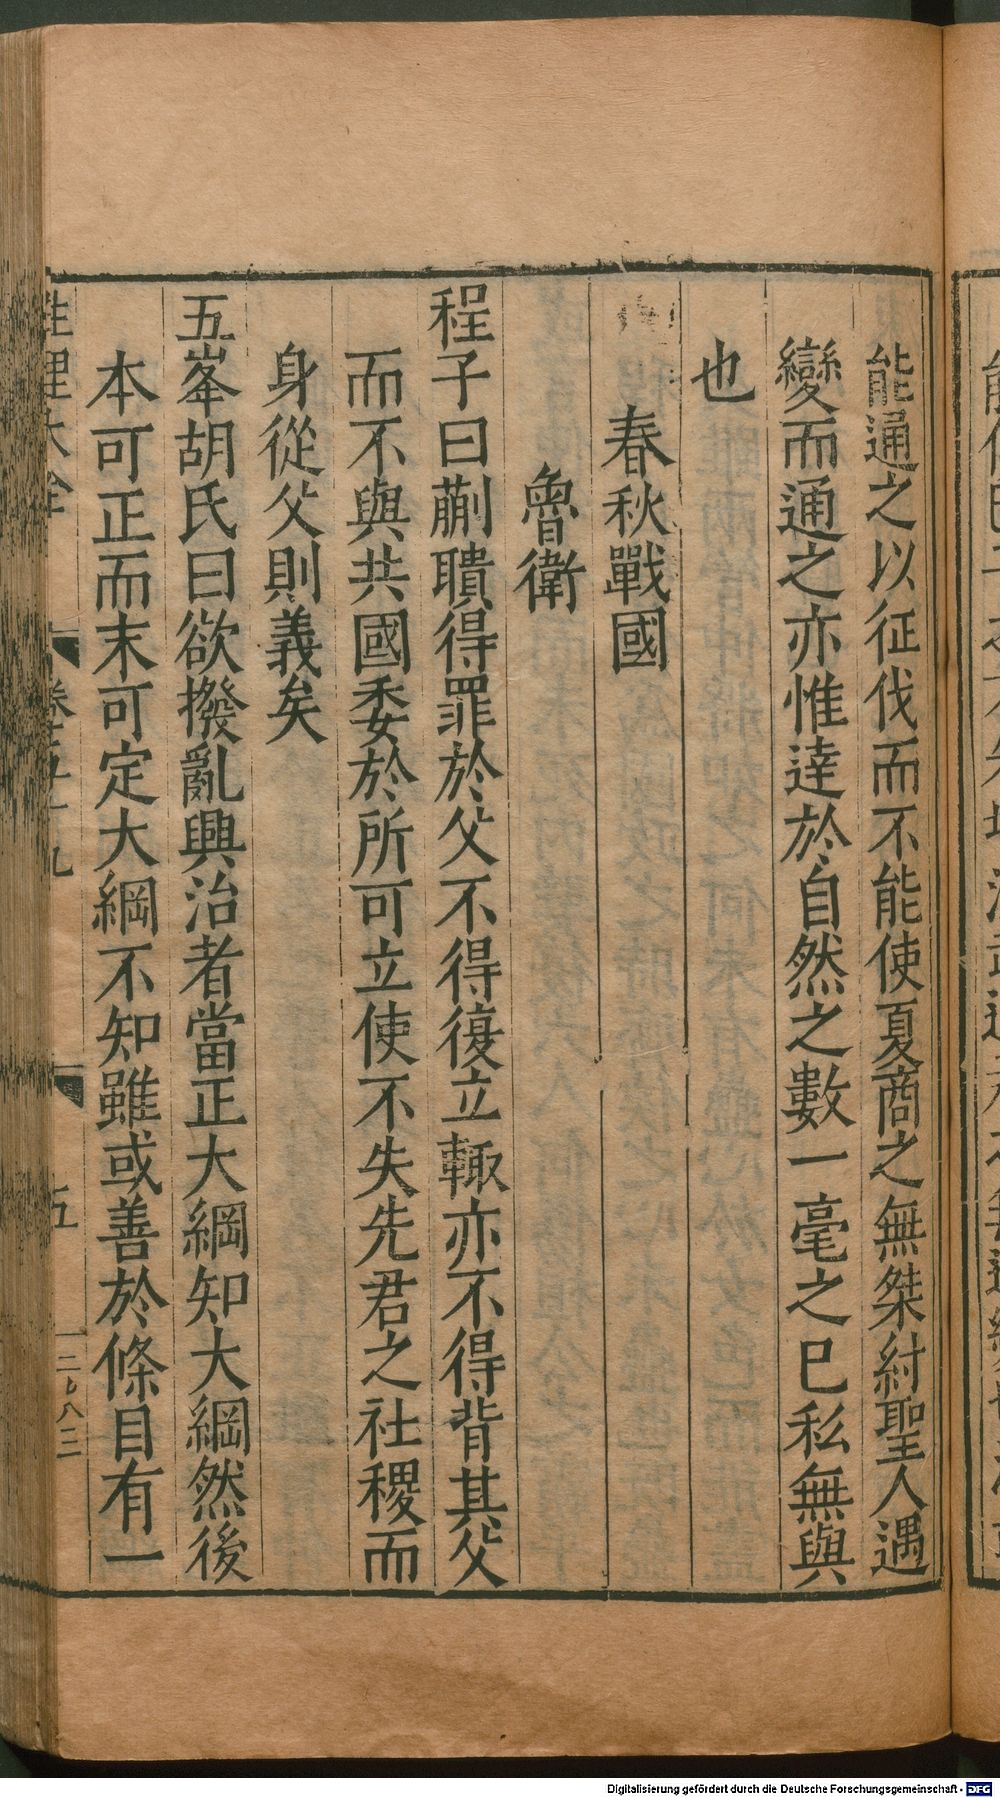 能通之以征伐而不能使夏商之無桀紂聖人遇
變而通之亦惟達於自然之數一毫之已私無與
也
春秋戰國
魯衛
程子曰蒯聵得罪於父不得復立輒亦不得背其父
而不與共國委於所可立使不失先君之社稷而
身從父則義矣
五峯胡氏曰欲撥亂興治者當正大綱知大綱然後
本可正而末可定大綱不知雖或善於條目有一
性理大全
卷五十九
五
Digitalisierung gefördert durch die Deutsche Forschungsgemeinschaft - DFG